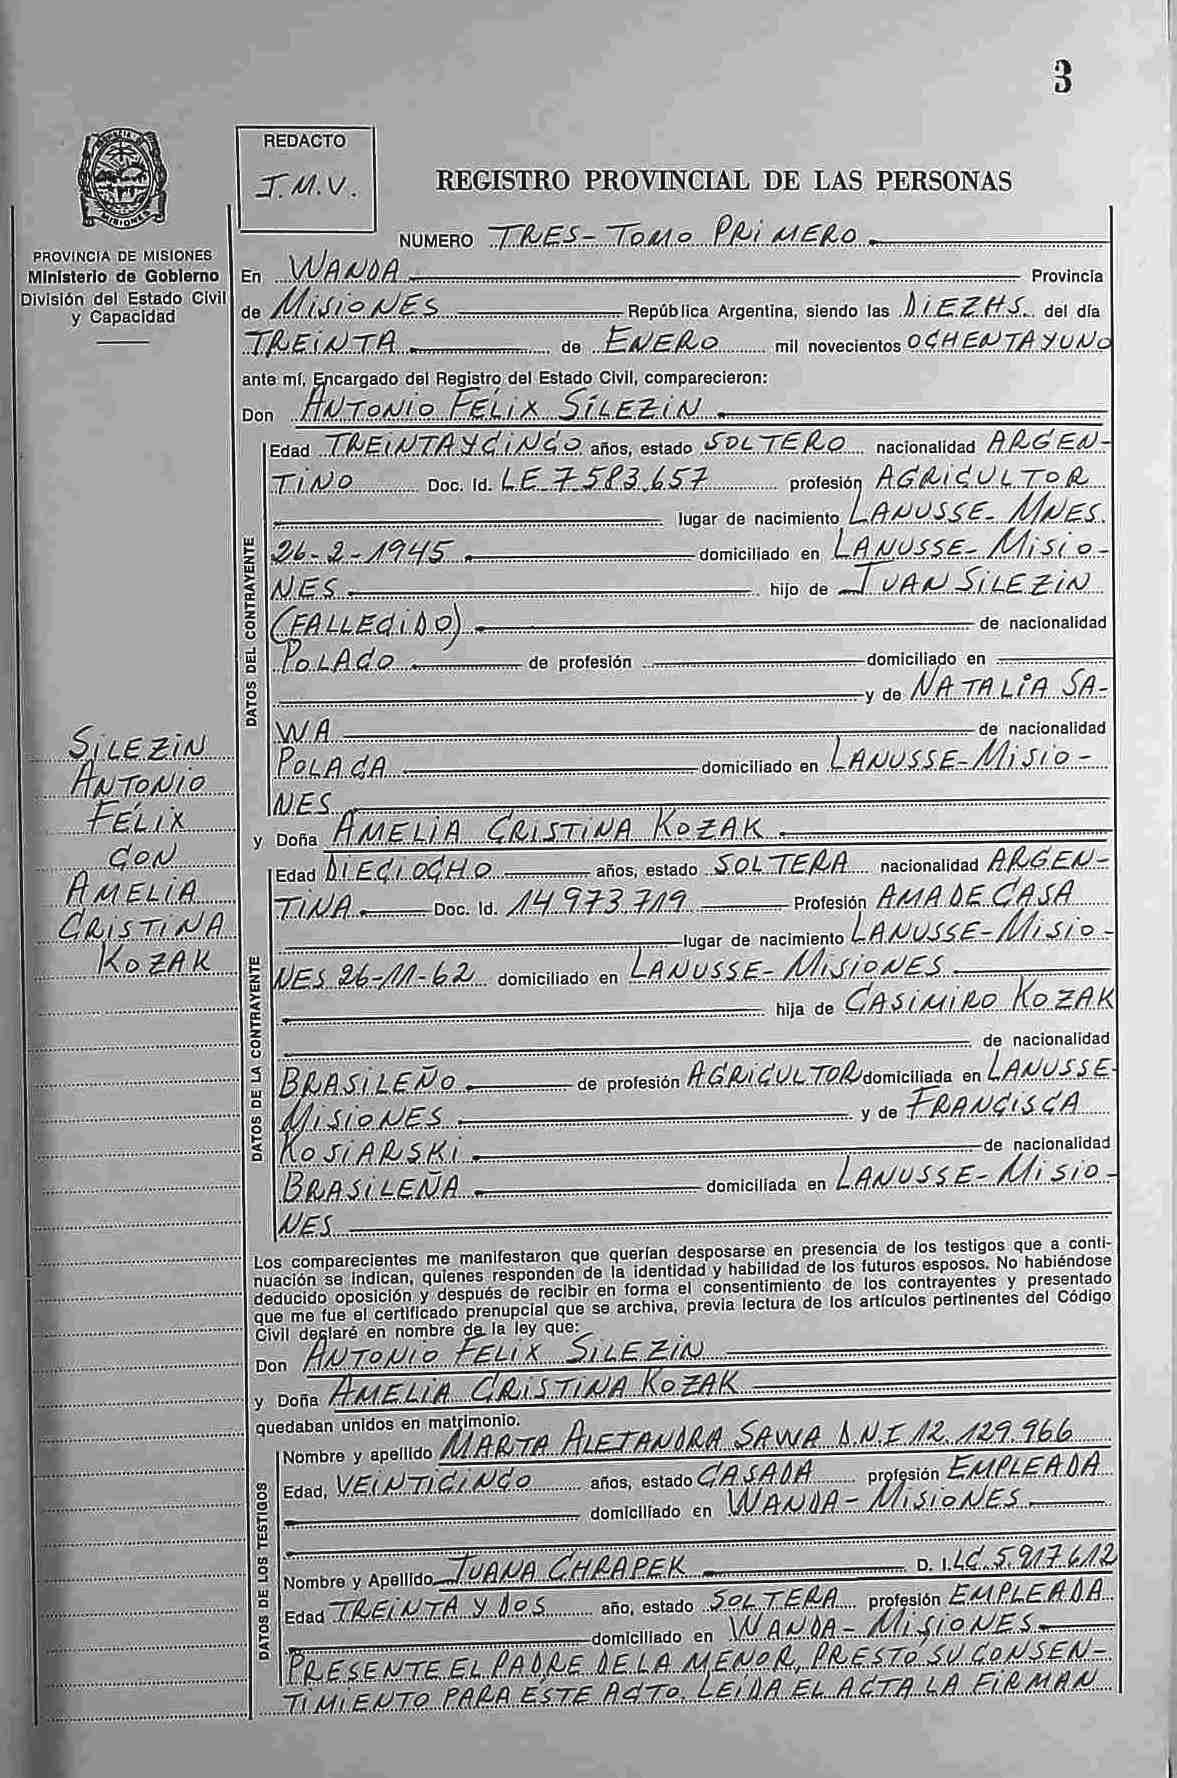 3
REDACTO
J.M.V.
REGISTRO PROVINCIAL DE LAS PERSONAS
MISIONES
PROVINCIA DE MISIONES
Ministerio de Gobierno
División del Estado Civil
y Capacidad
NUMERO TRES - TOMO PRIMERO
En WANDA Provincia
de MISIONES República Argentina, siendo las DIEZ HS. del día
TREINTA de ENERO mil novecientos OCHENTA Y UNO
ante mí, Encargado del Registro del Estado Civil, comparecieron:
Don ANTONIO FÉLIX SILEZIN
DATOS DEL CONTRAYENTE
Edad TREINTA Y CINCO años, estado SOLTERO nacionalidad ARGEN-
TINO Doc. Id. LE 7.583.657 profesión AGRICULTOR
lugar de nacimiento LANUSSE - MNES.
26-2-1945 domiciliado en LANUSSE - MISIO-
NES hijo de JUAN SILEZIN
(FALLECIDO) de nacionalidad
POLACO de profesión domiciliado en
y de NATALIA SA-
WA de nacionalidad
POLACA domiciliado en LANUSSE - MISIO-
NES
y Doña AMELIA CRISTINA KOZAK
DATOS DE LA CONTRAYENTE
Edad DIECIOCHO años, estado SOLTERA nacionalidad ARGEN-
TINA Doc. Id. 14.973.719 Profesión AMA DE CASA
lugar de nacimiento LANUSSE - MISIO-
NES 26-11-62 domiciliado en LANUSSE - MISIONES
hija de CASIMIRO KOZAK
de nacionalidad
BRASILEÑO de profesión AGRICULTOR domiciliada en LANUSSE-
MISIONES y de FRANCISCA
KOSIARSKI de nacionalidad
BRASILEÑA domiciliada en LANUSSE - MISIO-
NES
SILEZIN
ANTONIO
FÉLIX
CON
AMELIA
CRISTINA
KOZAK
Los comparecientes me manifestaron que querían desposarse en presencia de los testigos que a conti-
nuación se indican, quienes responden de la identidad y habilidad de los futuros esposos. No habiéndose
deducido oposición y después de recibir en forma el consentimiento de los contrayentes y presentado
que me fue el certificado prenupcial que se archiva, previa lectura de los artículos pertinentes del Código
Civil declaré en nombre de la ley que:
Don ANTONIO FELIX SILEZIN
y Doña AMELIA CRISTINA KOZAK
quedaban unidos en matrimonio.
DATOS DE LOS TESTIGOS
Nombre y apellido MARTA ALEJANDRA SAWA D.N.I 12.129.966
Edad, VEINTICINCO años, estado CASADA profesión EMPLEADA
domiciliado en WANDA - MISIONES
Nombre y Apellido JUANA CHRAPEK D. I. LC. 5.917.612
Edad TREINTA Y DOS año, estado SOLTERA profesión EMPLEADA
domiciliado en WANDA - MISIONES
PRESENTE EL PADRE DE LA MENOR, PRESTO SU CONSEN-
TIMIENTO PARA ESTE ACTO. LEIDA EL ACTA LA FIRMAN